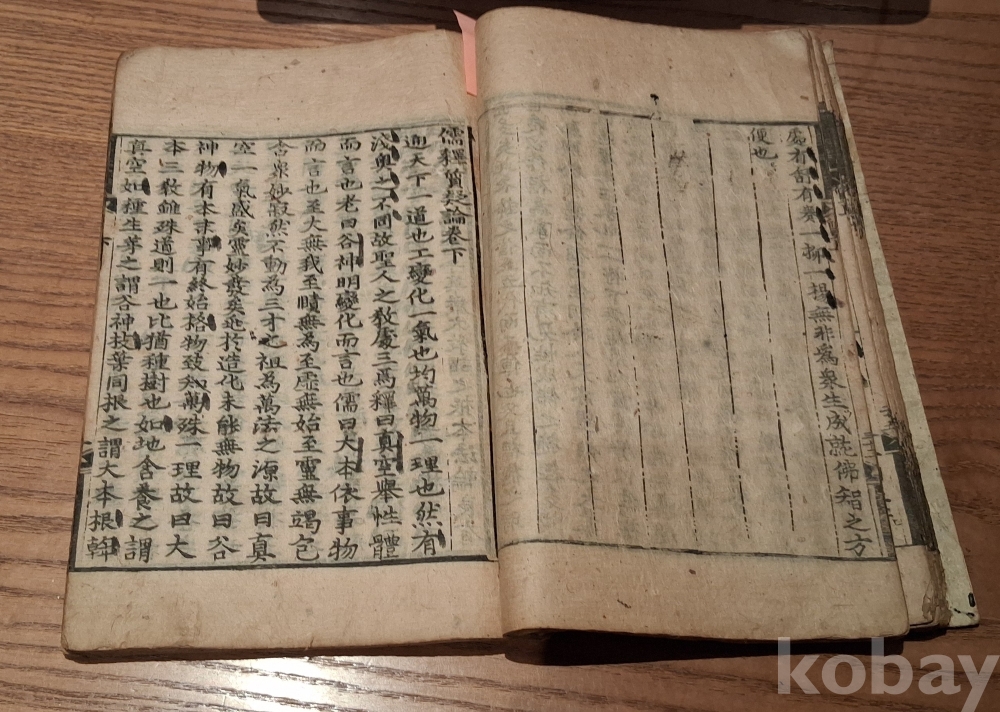 處有舒有卷一抑一揚無非爲衆生成就佛智之方
便也
儒釋質疑論卷下
通天下一道也工變化一氣也均萬物一理也然有
淺奧之不同故聖人之敎處三焉釋曰真空舉性體
而言也老曰谷神明變化而言也儒曰大本依事物
而言也至大無我至賾無為至虛無始至靈無竭包
含衆妙寂然不動為三才之祖為萬法之源故曰真
空一氣感矣靈妙發矣逈於造化未能無物故曰谷
神物有本末事有終始格物致知萬殊一理故曰大
本三敎雖殊道則一也比猶種樹也如地含養之謂
真空如種生芽之謂谷神枝葉同根之謂大本根幹
kobay